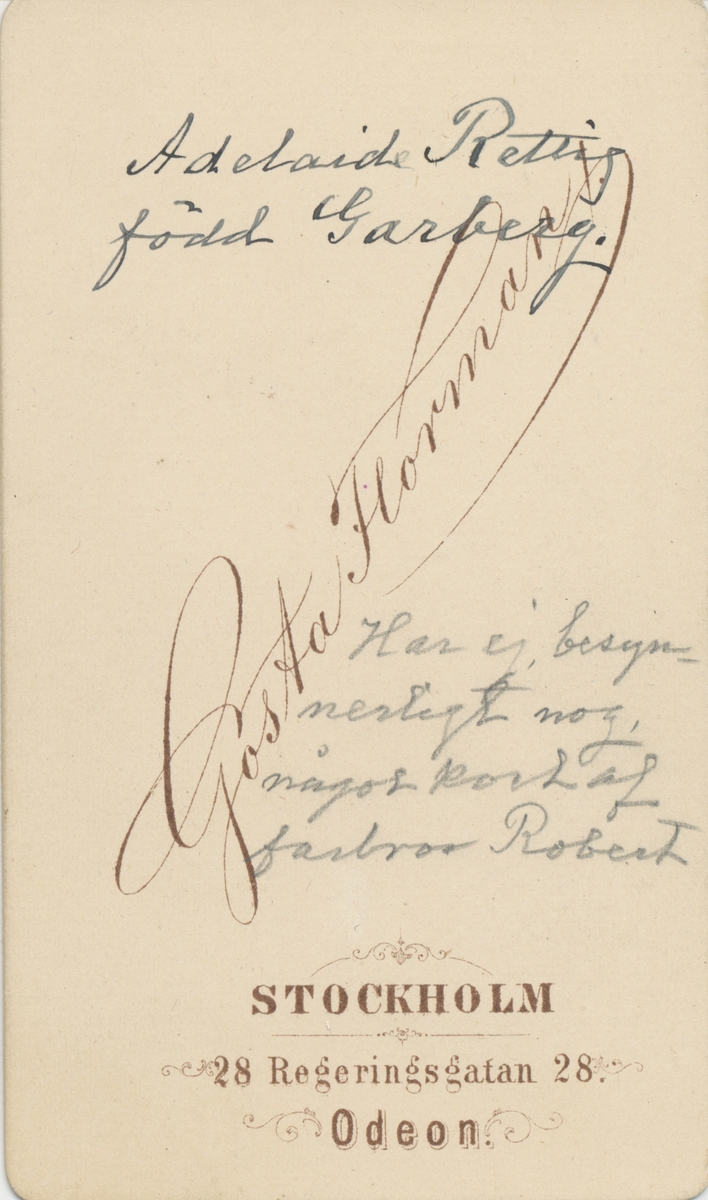 Adelaide Rettig
född Garberg.
Gösta Florman
Har ej, besyn-
nerligt nog,
något kort af
farbror Robert
STOCKHOLM
28 Regeringsgatan 28.
Odeon.